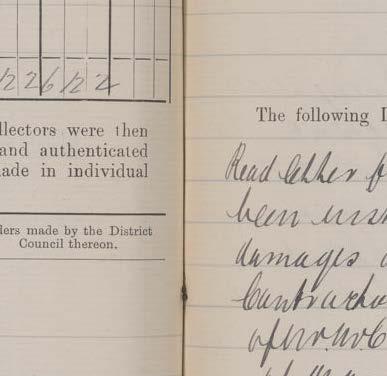 12 2 6 12 2
llectors were then
and authenticated
ade in individual
ders made by the District
Council thereon.
The following
Read letter
been
damages